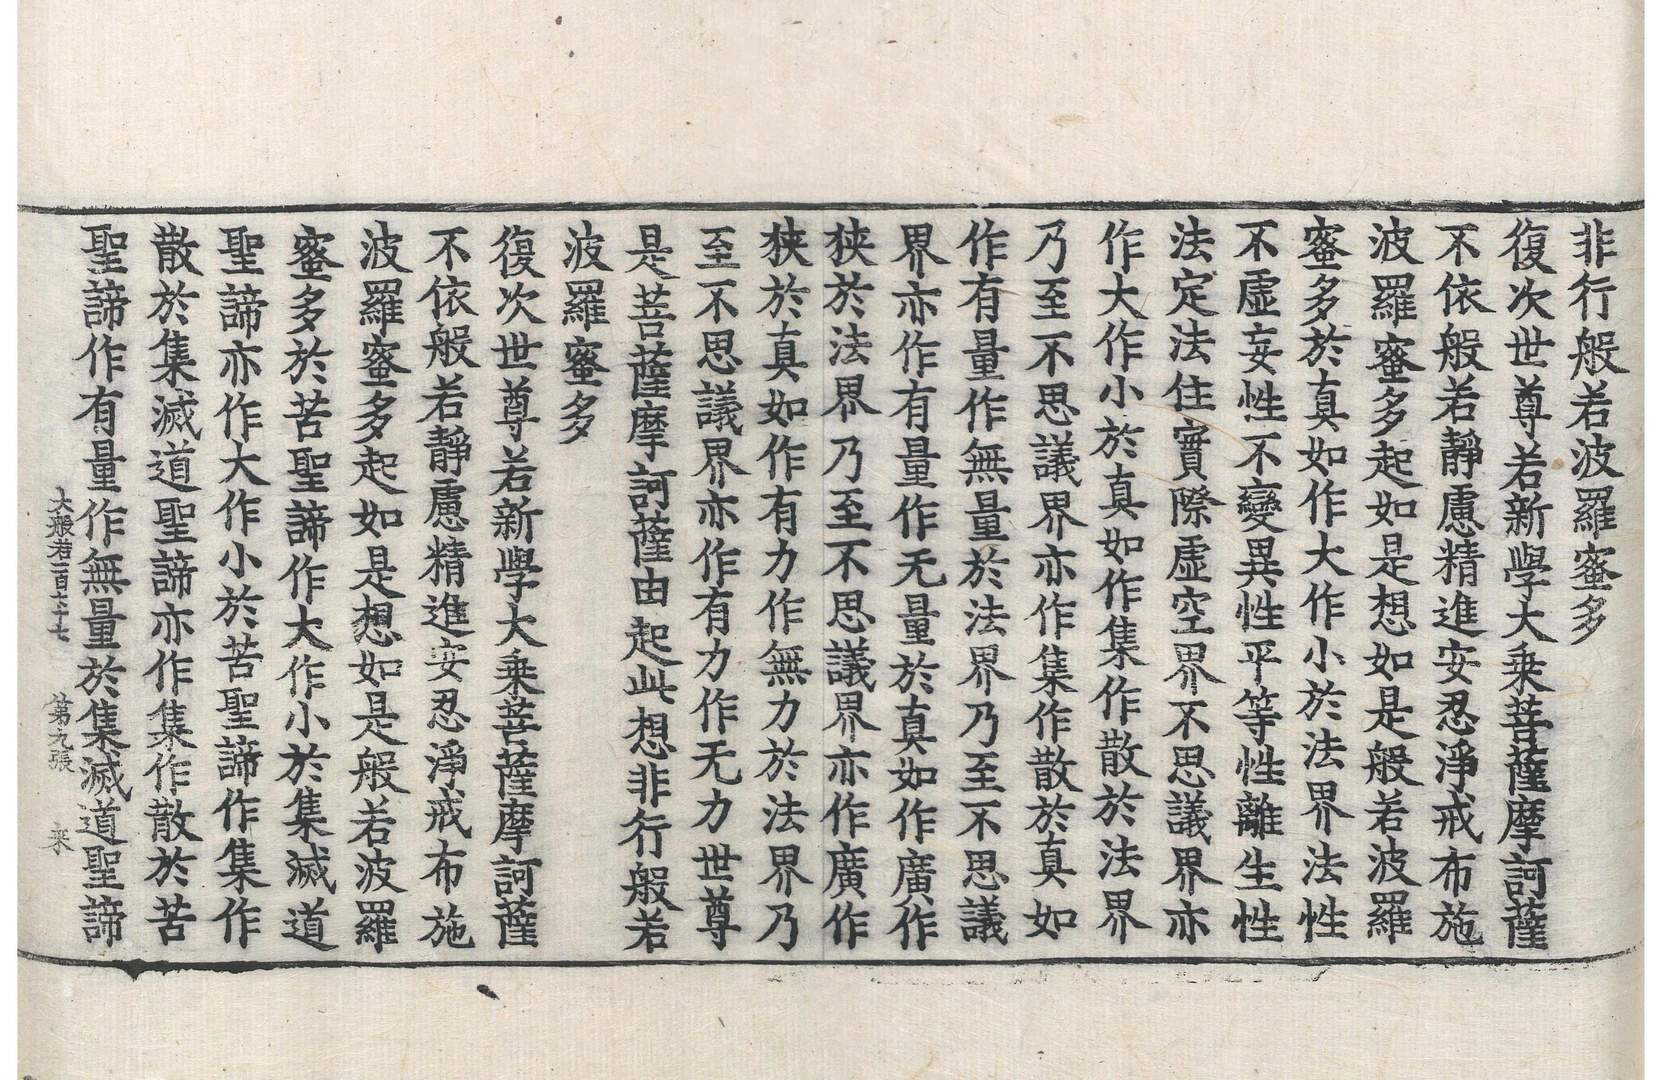 非行般若波羅蜜多
復次世尊若新學大乘菩薩摩訶薩
不依般若靜慮精進安忍淨戒布施
波羅蜜多起如是想如是般若波羅
蜜多於真如作大作小於法界法性
不虛妄性不變異性平等性離生性
法定法住實際虛空界不思議界亦
作大作小於真如作集作散於法界
乃至不思議界亦作集作散於真如
作有量作無量於法界乃至不思議
界亦作有量作无量於真如作廣作
狹於法界乃至不思議界亦作廣作
狹於真如作有力作無力於法界乃
至不思議界亦作有力作无力世尊
是菩薩摩訶薩由起此想非行般若
波羅蜜多
復次世尊若新學大乘菩薩摩訶薩
不依般若靜慮精進安忍淨戒布施
波羅蜜多起如是想如是般若波羅
蜜多於苦聖諦作大作小於集滅道
聖諦亦作大作小於苦聖諦作集作
散於集滅道聖諦亦作集作散於苦
聖諦作有量作無量於集滅道聖諦
大般若一百七十七 第九張 來